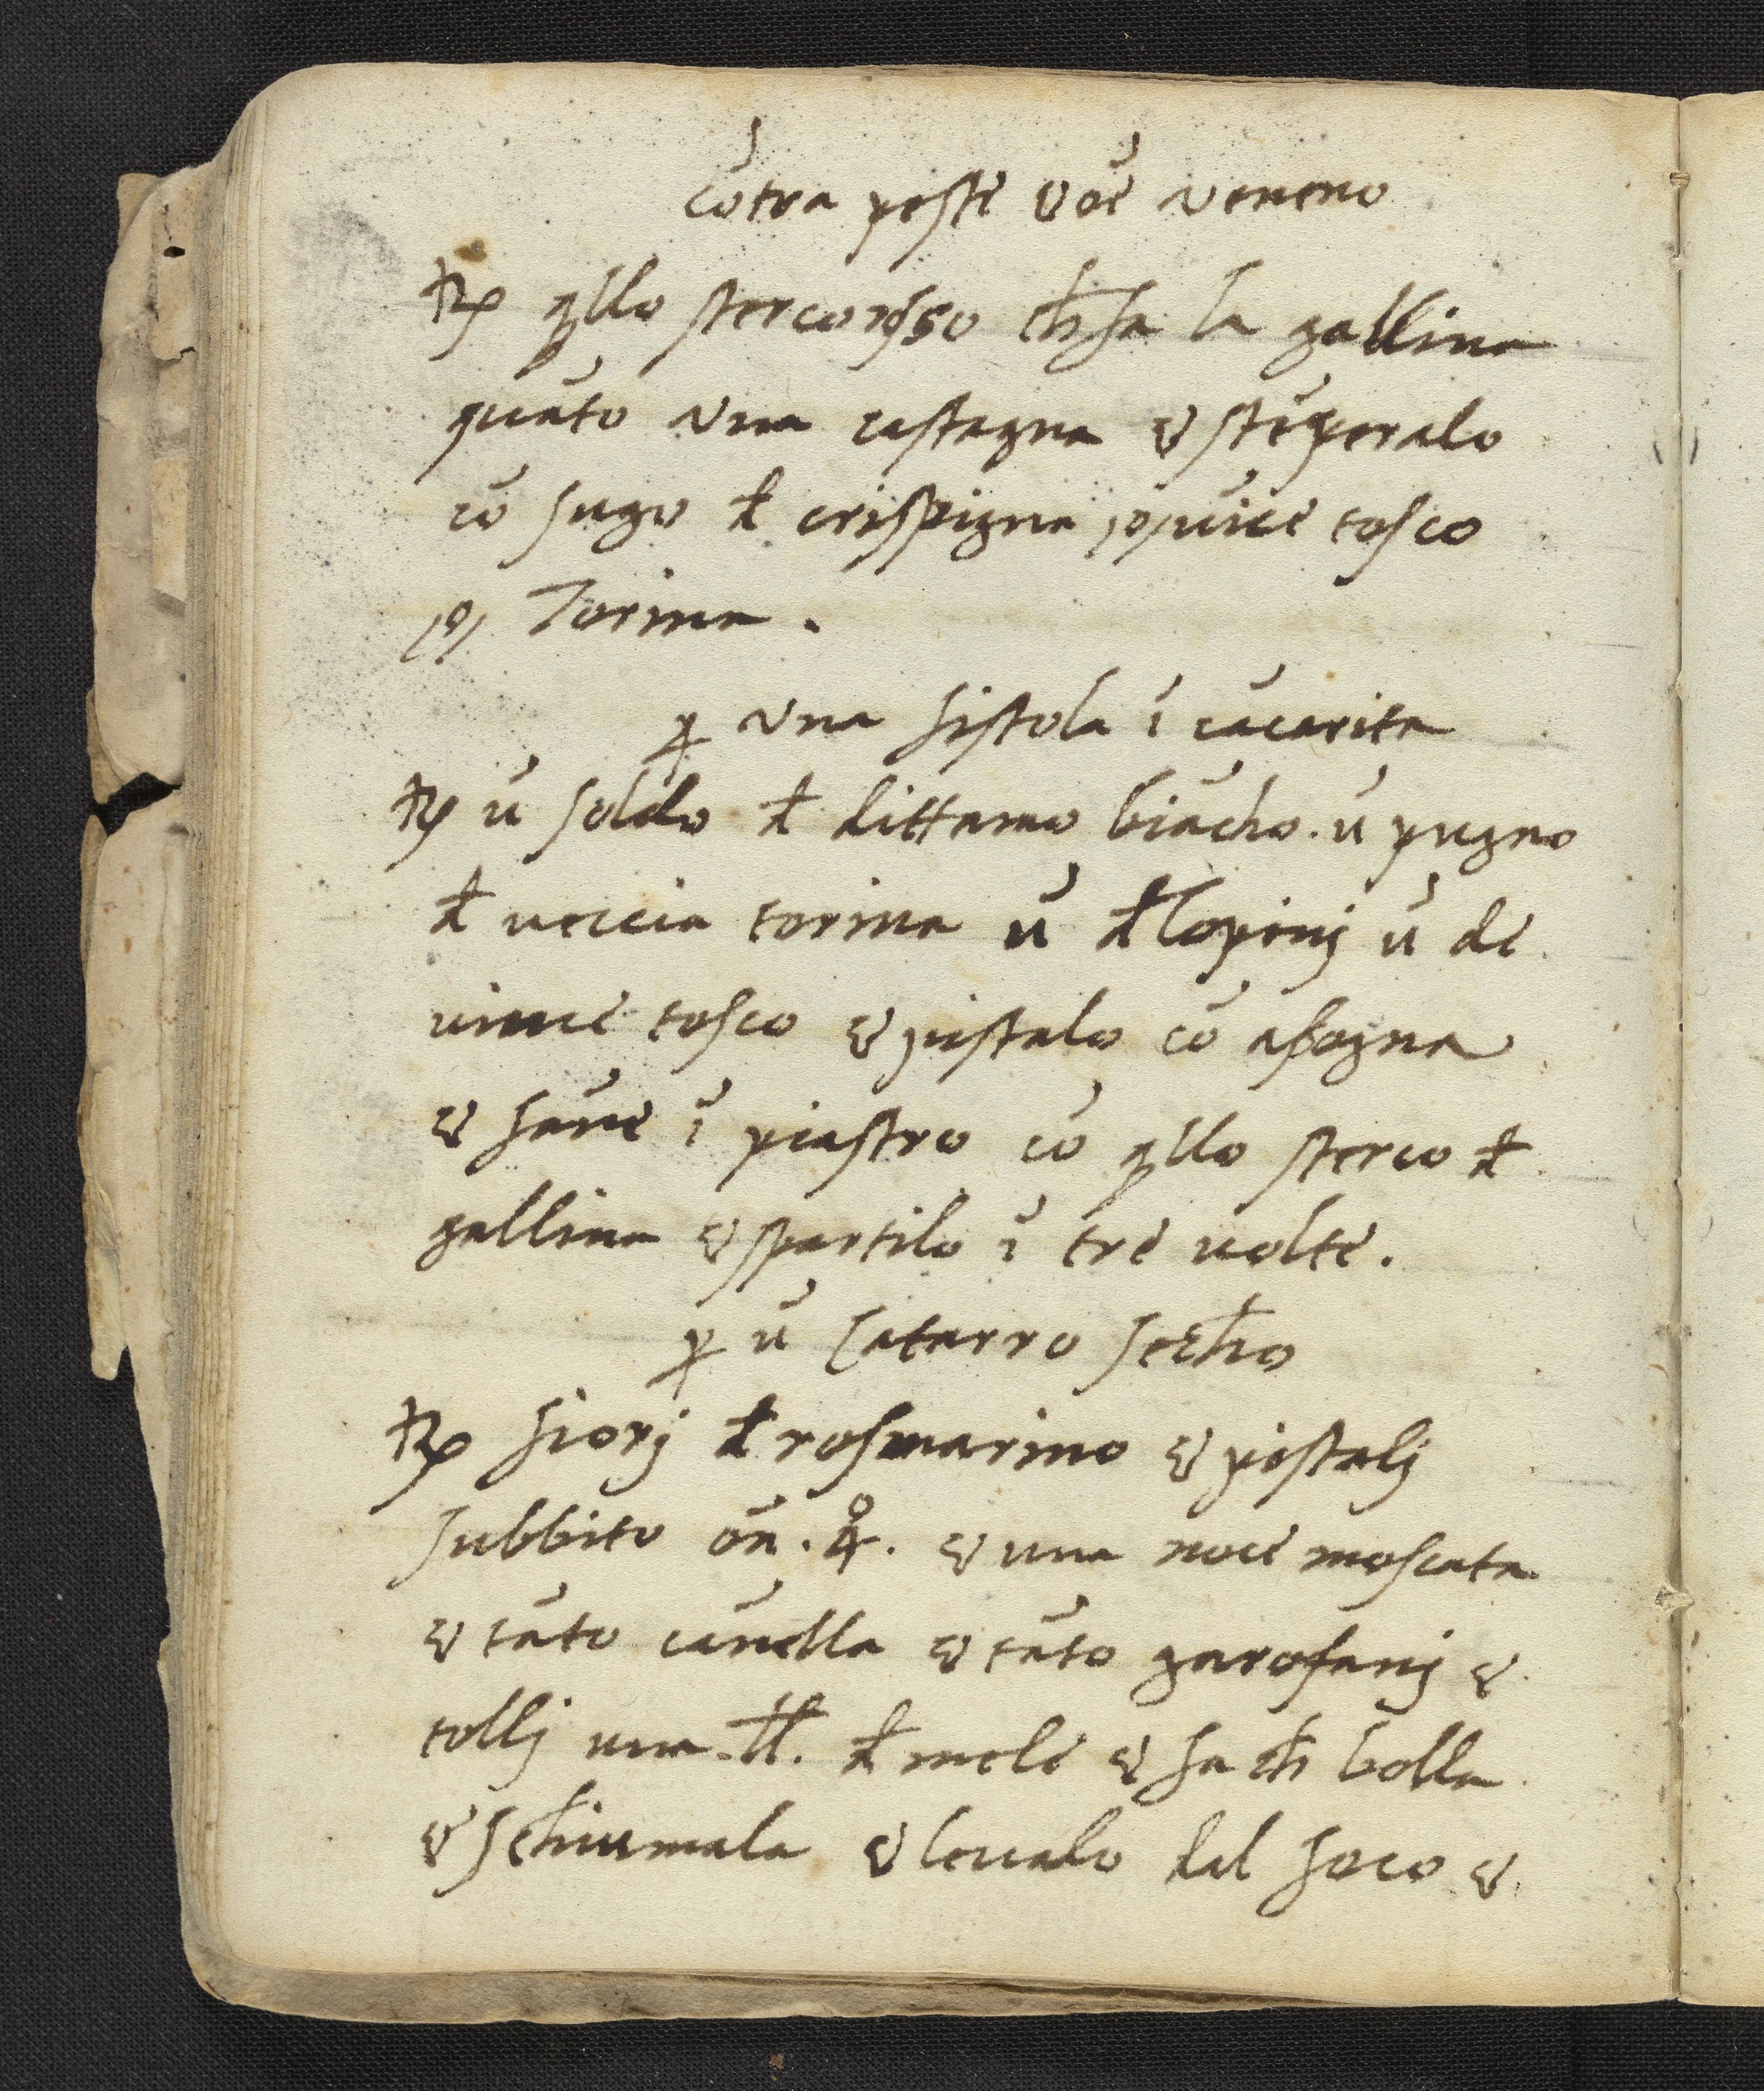 cō tra peste & oē veneno
℞ qllo sterco rosso ch̄ fa la gallina
quāto una castagna & stēperalo
cō sugo đ crispigna o vīce tosco
o Torina.
ꝑ una fistola ī cācarita
℞ ū soldo đ dittamo biācho. ū pugno
đ veccia torina ū đ lopinj ū de
vince tosco & pistalo cō asogna
& fāne ī piastro cō qllo sterco đ
gallina & spartilo ī tre volte.
ꝑ ū catarro secho
℞ fiorj đ rosmarino & pistalj
subbito on̄. 4. & una noce moscata
& tāto cānella & tāto garofanj &
tollj una ħ. đ mele & fa ch̄ bolla
& schiumala & levalo dal foco &